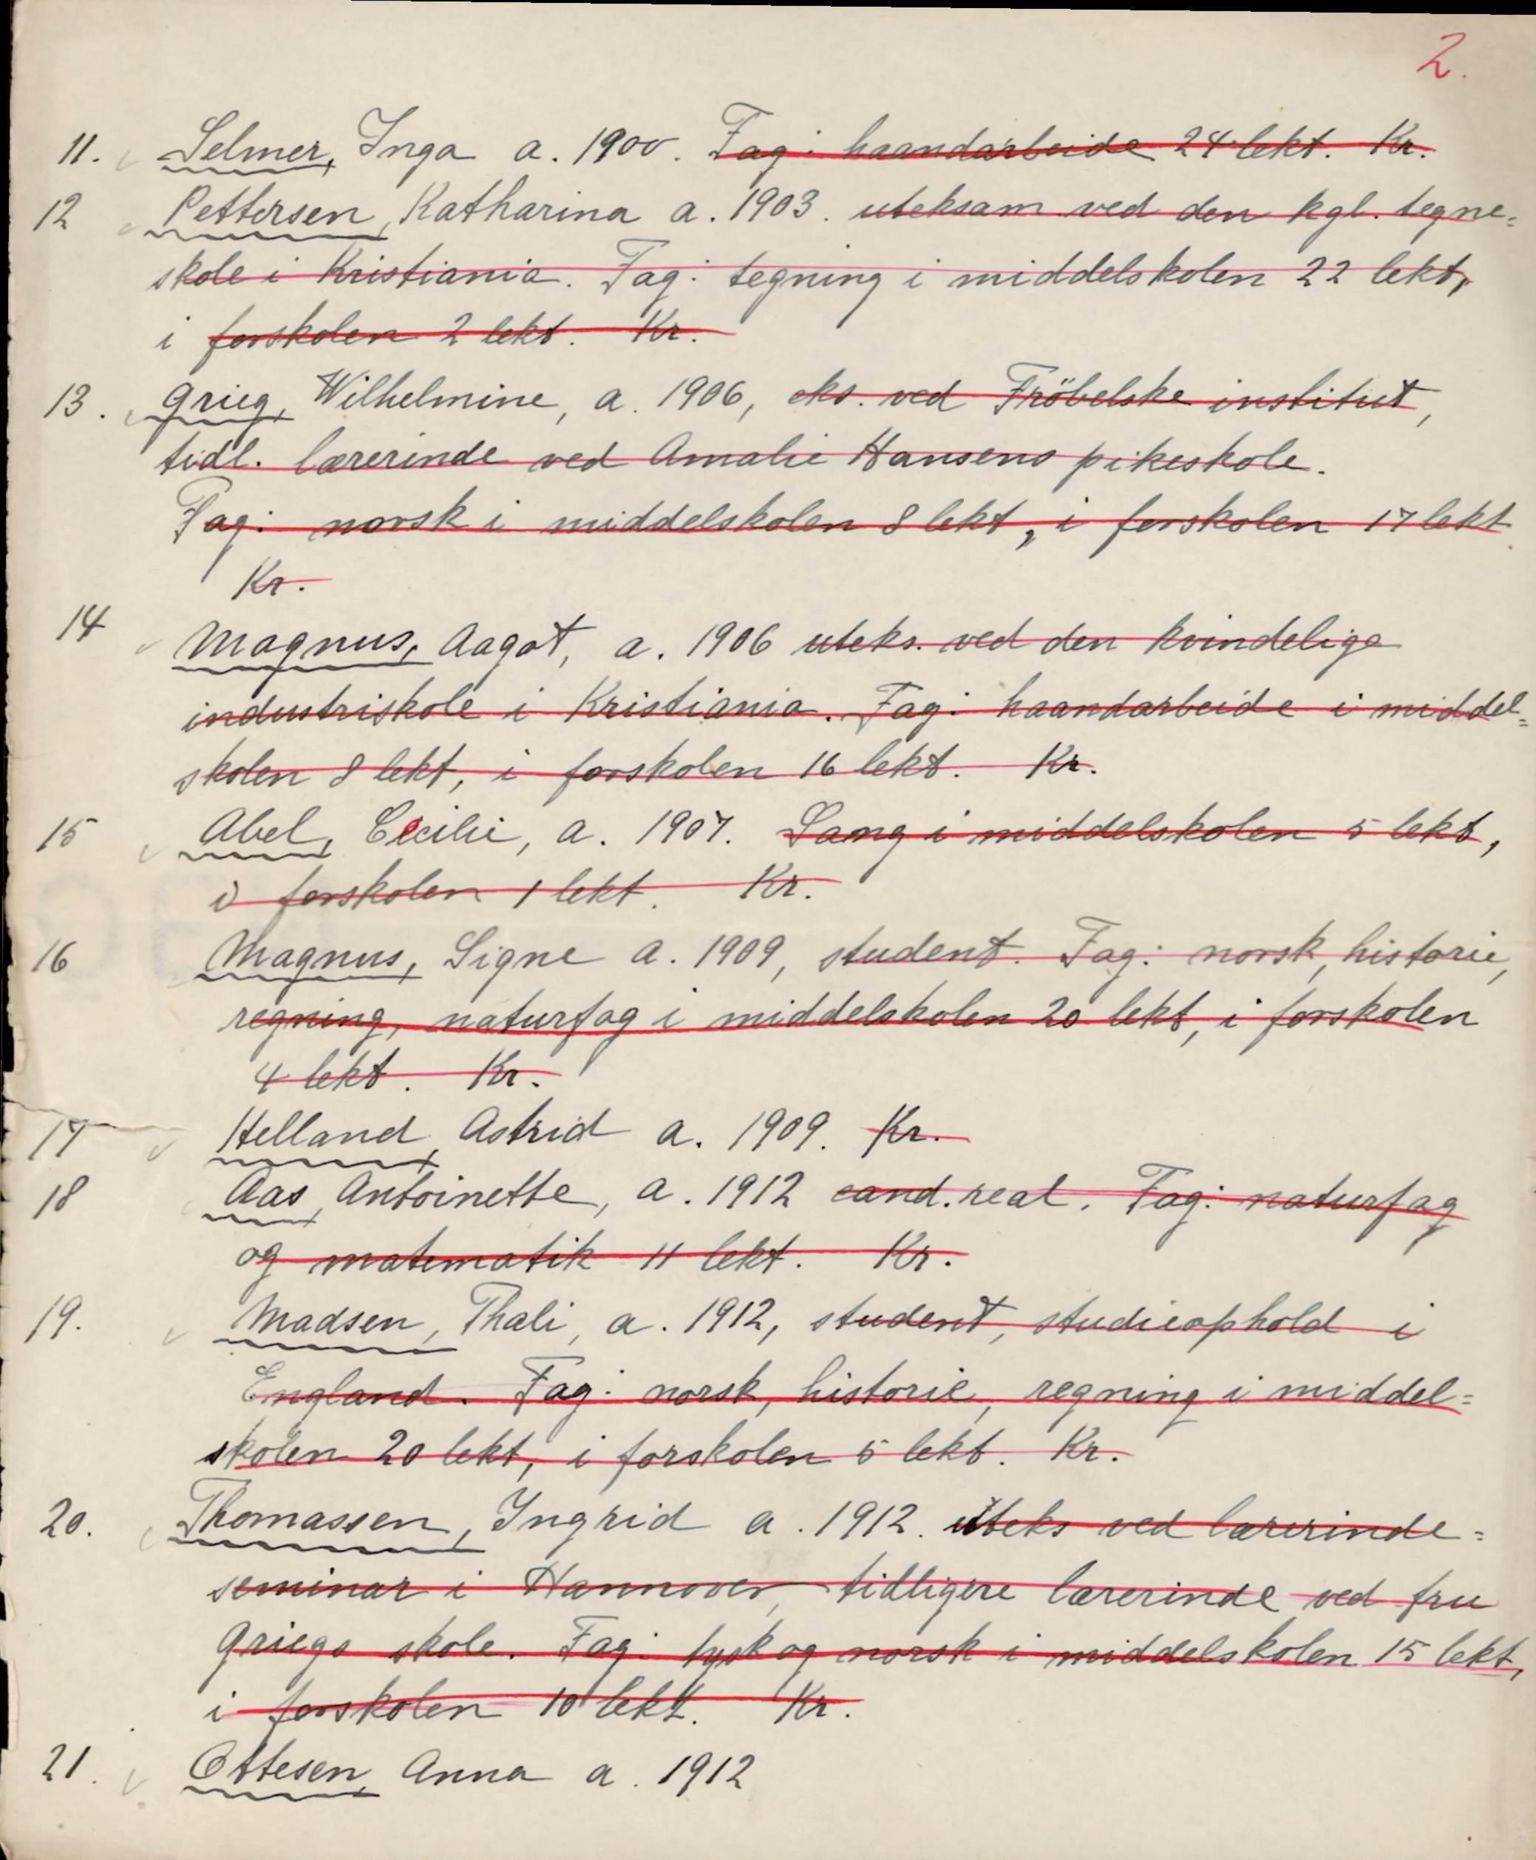 2.
11. Selmer, Inga a. 1900. Fag: haandarbeide 24 lekt. Kr.
12 Pettersen, Katharina a. 1903. uteksam. ved den kgl. tegne=
skole i Kristiania. Fag: tegning i middelskolen 22 lekt,
i forskolen 2 lekt. Kr.
13. Grieg, Wilhelmine, a. 1906, eks. ved Fröbelske institut,
tidl. lærerinde ved Amalie Hansens pikeskole.
Fag: norsk i middelskolen 8 lekt, i forskolen 17 lekt
Kr.
14 Magnus, Aagot, a. 1906 uteks. ved den kvindelige
industriskole i Kristiania. Fag: haandarbeide i middel=
skolen 8 lekt, i forskolen 16 lekt. Kr.
15 Abel, Cecilie, a. 1907. Sang i middelskolen 5 lekt,
i forskolen 1 lekt. Kr.
16 Magnus, Signe a. 1909, student. Fag: norsk, historie,
regning, naturfag i middelskolen 20 lekt, i forskolen
4 lekt. Kr.
17 Helland, Astrid a. 1909. Kr.
18 Aas, Antoinette, a. 1912 cand. real. Fag: naturfag
og matematik 11 lekt. Kr.
19. Madsen, Thali, a. 1912, student, studieophold i
England. Fag: norsk, historie, regning i middel=
skolen 20 lekt, i forskolen 5 lekt. Kr.
20. Thomassen, Ingrid a. 1912. Uteks ved lærerinde=
seminar i Hannover, tidligere lærerinde ved fru
Griegs skole. Fag: tysk og norsk i middelskolen 15 lekt,
i forskolen 10 lekt. Kr.
21. Ottesen, Anna a. 1912